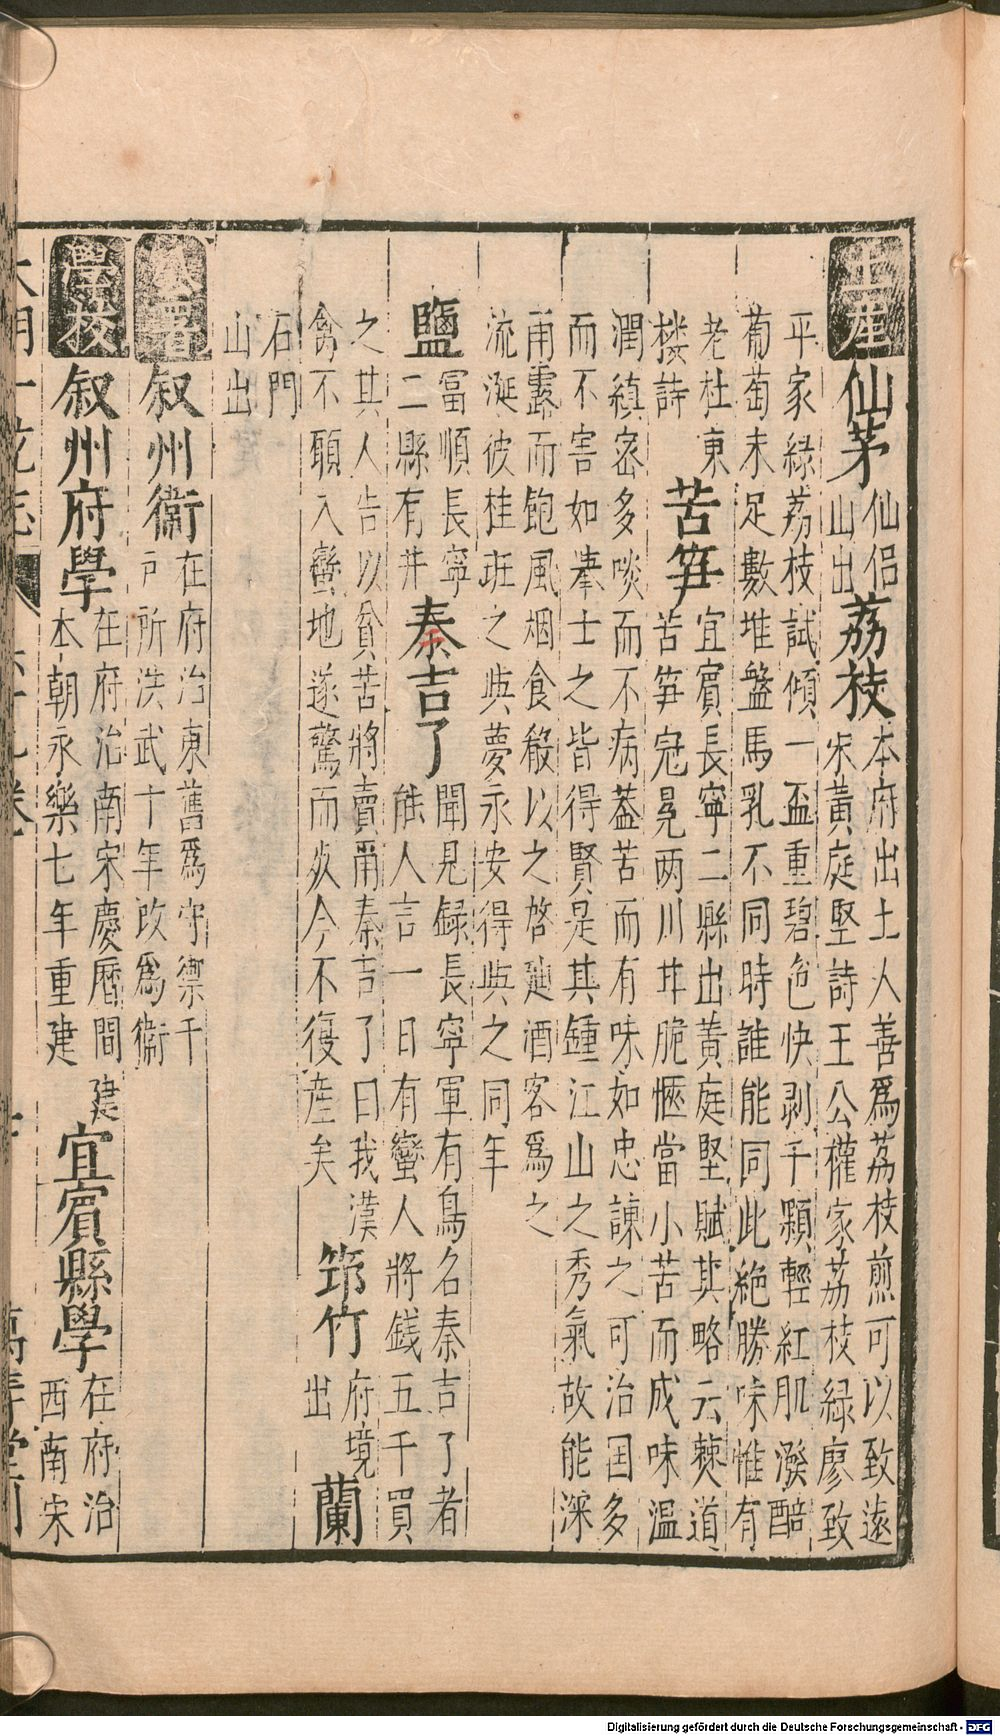 土産 仙茅 仙侣山出 荔枝 本府出土人善爲荔枝煎可以致遠
宋黃庭堅詩王公權家荔枝緑廖致
平家緑荔枝試傾一盃重碧色快剥千顆輕紅肌潑醅
葡萄未足數堆盤馬乳不同時誰能同此絶勝味惟有
老杜東樓詩 苦笋 宜賓長寧二縣出黃庭堅賦其略云僰道
苦笋冠冕两川甘脆愜當小苦而成味温
潤縝宻多啖而不病葢苦而有味如忠諫之可治国多
而不害如舉士之皆得賢是其鍾江山之秀氣故能深
雨露而飽風烟食殽以之啓廸酒客爲之
流涎彼桂班之與夢永安得與之同年
鹽 富順長寧二縣有井 秦吉了 聞見録長寧軍有鳥名秦吉了者
能人言一日有蠻人將錢五千買
之其人告以貧苦將賣甭秦吉了曰我漢
禽不願入蠻地遂驚而死今不復産矣 筇竹 府境出 蘭
石門山出
公署 叙州衞 在府治東舊爲守禦千
戸所洪武十年改爲衞
學校 叙州府學 在府治南宋慶曆間建
本朝永樂七年重建 宜賓縣學 在府治
西南宋